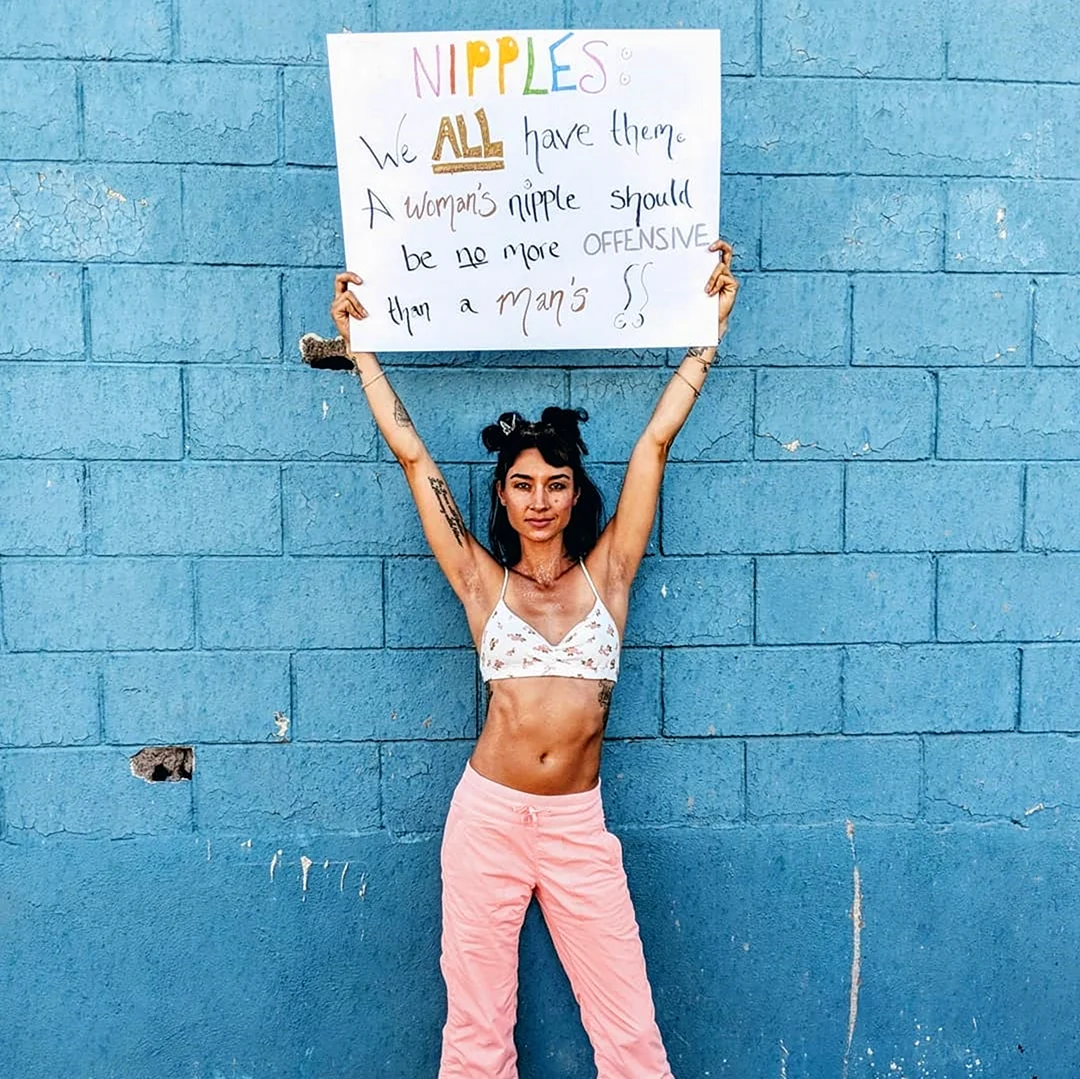 NIPPLES:
We ALL have them.
A woman's nipple should
be no more OFFENSIVE
than a man's !!